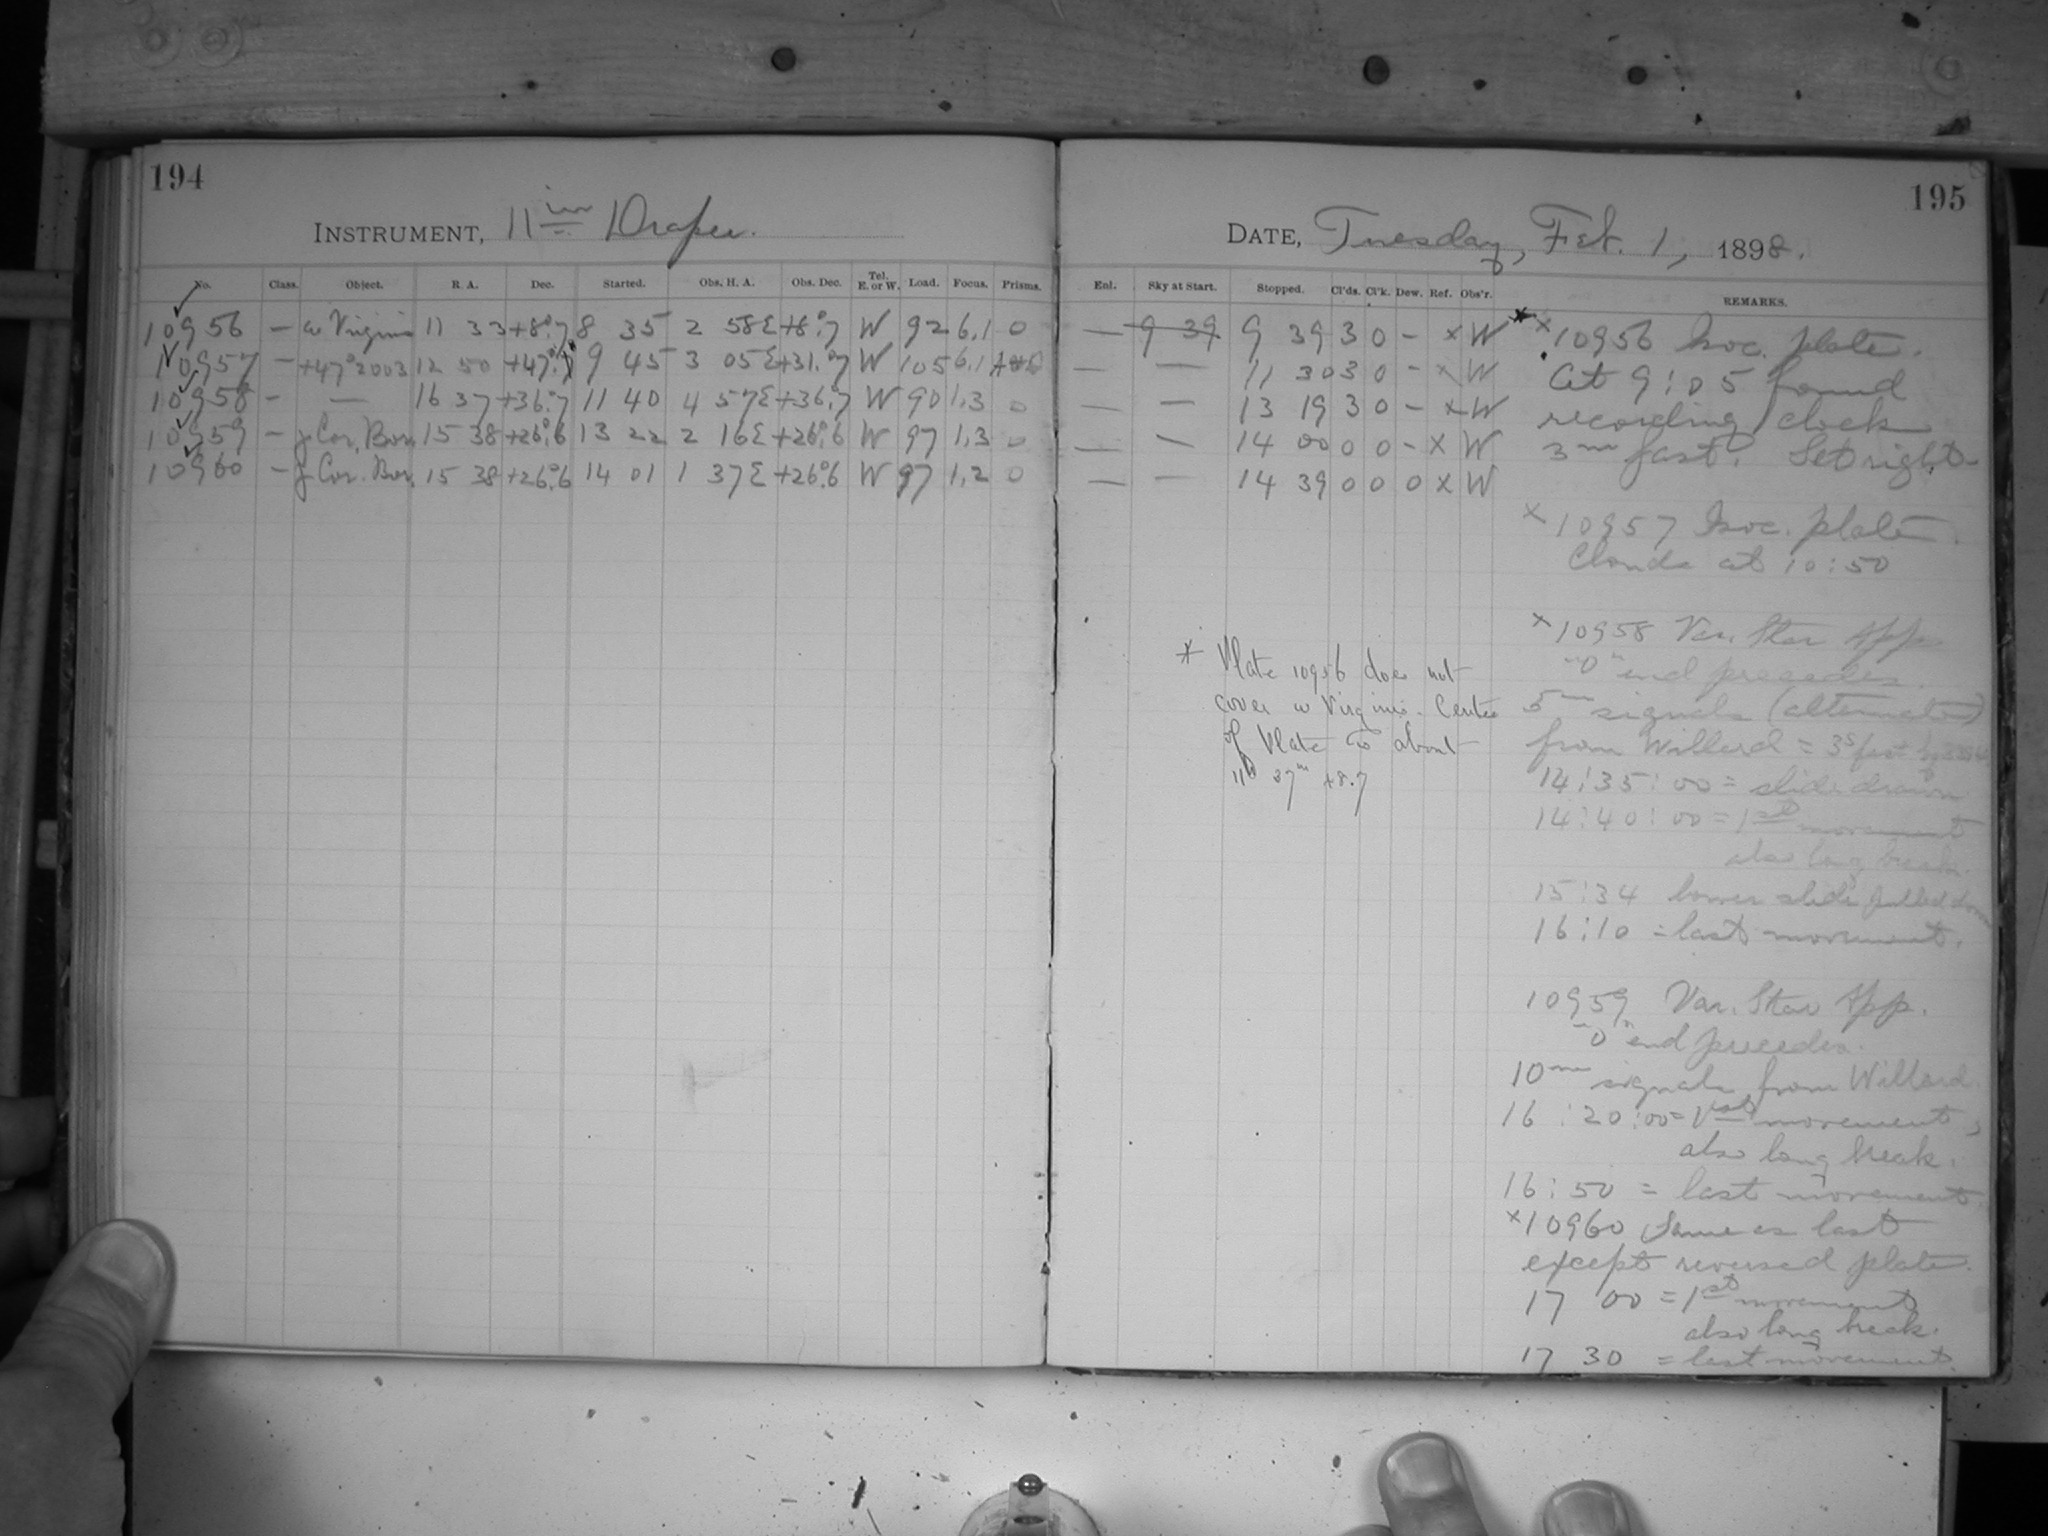 194
INSTRUMENT, 11 in Draper.
No. Class. Object. R. A. Dec. Started. Obs. H. A. Obs. Dec. Tel. E. or W. Load. Focus. Prisms.
10956 — ω Virginis 11 33 +8°.7 8 35 2 58E +8°.7 W 92 6.1 0
10957 — +47°2003 12 50 9 45 3 05E W 105 6.1
10958 — — 16 37 +36°.7 11 40 4 57E +36°.7 W 90 1.3 0
10959 — γ Cor. Bor. 15 38 +26°.6 13 22 2 16E +26°.6 W 97 1.3 0
10960 — γ Cor. Bor. 15 38 +26°.6 14 01 1 37E +26°.6 W 97 1.2 0
195
DATE, Tuesday, Feb. 1, 1898.
Enl. Sky at Start. Stopped. Cl'ds. Cl'k. Dew. Ref. Obs'r. REMARKS.
— 9 39 9 39 3 0 - x W
— — 11 30 3 0 - x W
— — 13 19 3 0 - x W
— — 14 00 0 0 - x W
— — 14 39 0 0 0 x W
* Plate 10956 does not
cover ω Virginis. Centre
of Plate is about
11h 37m +8.7
* x 10956 Isoc. plate.
At 9:05 found
recording clock
3m fast. Set right
x 10957 Isoc. plate.
Clouds at 10:50
x 10958 Var. Star App.
"0" end precedes.
5m signals (alternate)
from Willard = 3s fast
14:35:00 = slide drawn
14:40:00 = 1st movement
also long break.
15:34 lower slide pulled down
16:10 = last movement.
10959 Var. Star App.
"0" end precedes.
10m signals from Willard.
16:20:00 = 1st movement,
also long break.
16:50 = last movement.
x 10960 Same as last
except reversed plate.
17 00 = 1st movement
also long break.
17 30 = last movement.